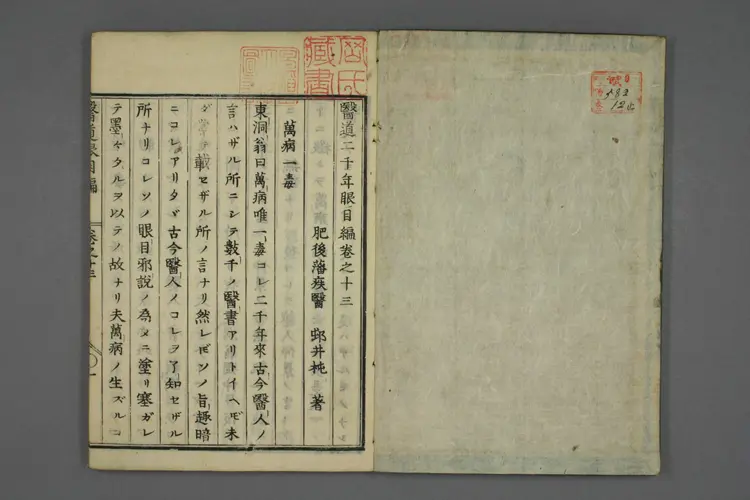 醫道二千年眼目編卷之十三
肥後藩疾醫 邨井杶 著
萬病一毒
東洞翁曰萬病唯一毒コレ二千年來古今醫人ノ
言ハザル所ニシテ數千ノ醫書アリトイヘ𪜈未
ダ嘗テ載セザル所ノ言ナリ然レ𪜈ソノ旨趣暗
ニコレアリタヾ古今醫人ノコレヲ了知セザル
所ナリコレソノ眼目邪說ノ爲タニ塗リ塞ガレ
テ墨ケタルヲ以テノ故ナリ夫萬病ノ生ズルコ
卷之十三
一
藏書